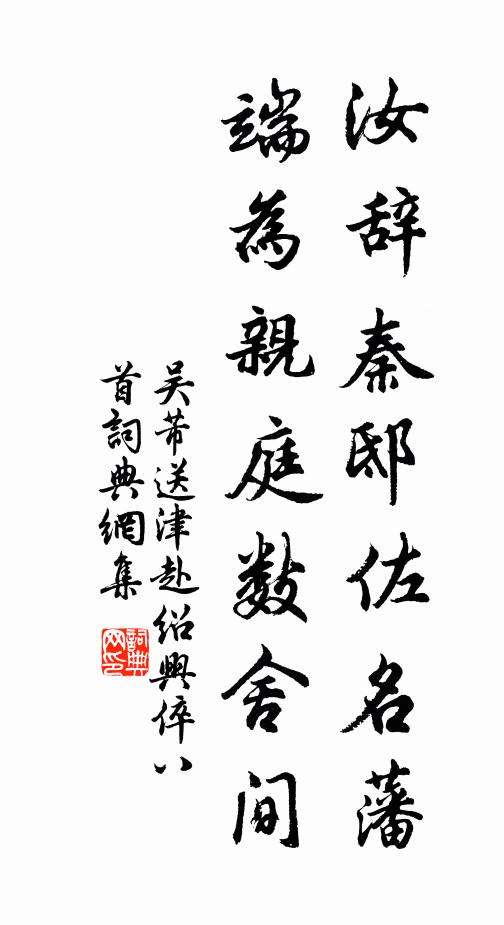 汝辞秦邸佐名藩
端為親庭数舍间
吴芾送津赴绍興倅八
首詞典網集
詞典
网印